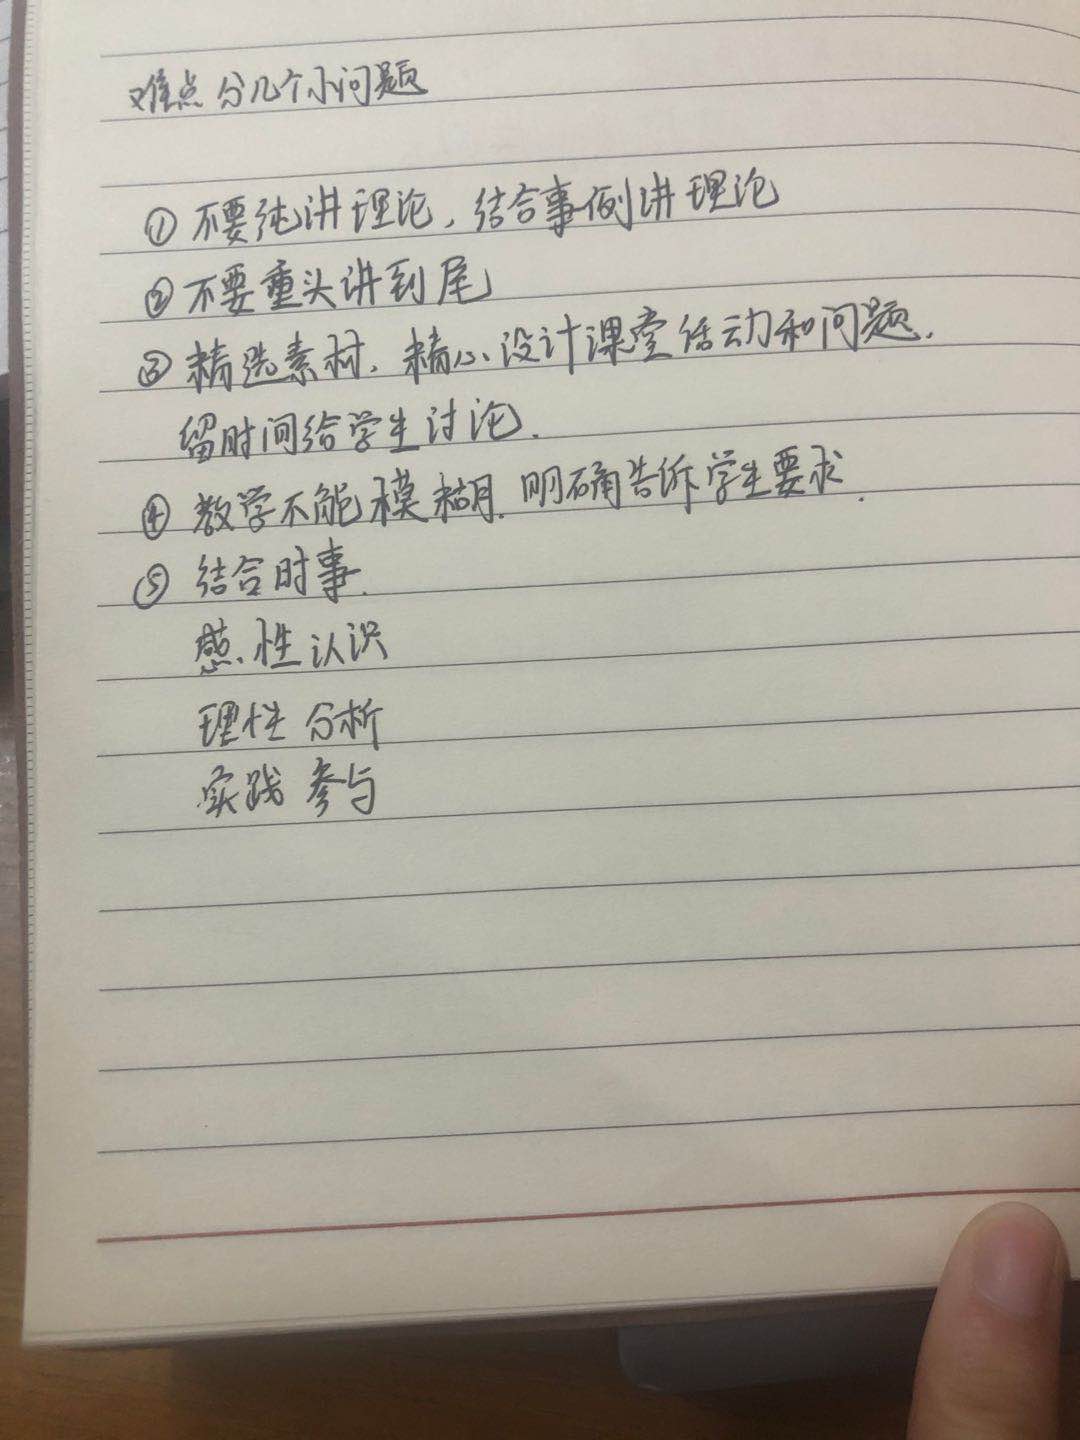 难点分几个小问题
①不要纯讲理论，结合事例讲理论
②不要重头讲到尾
③精选素材，精心设计课堂活动和问题，
留时间给学生讨论.
④教学不能模糊.明确告诉学生要求.
⑤结合时事.
感性认识
理性分析
实践参与